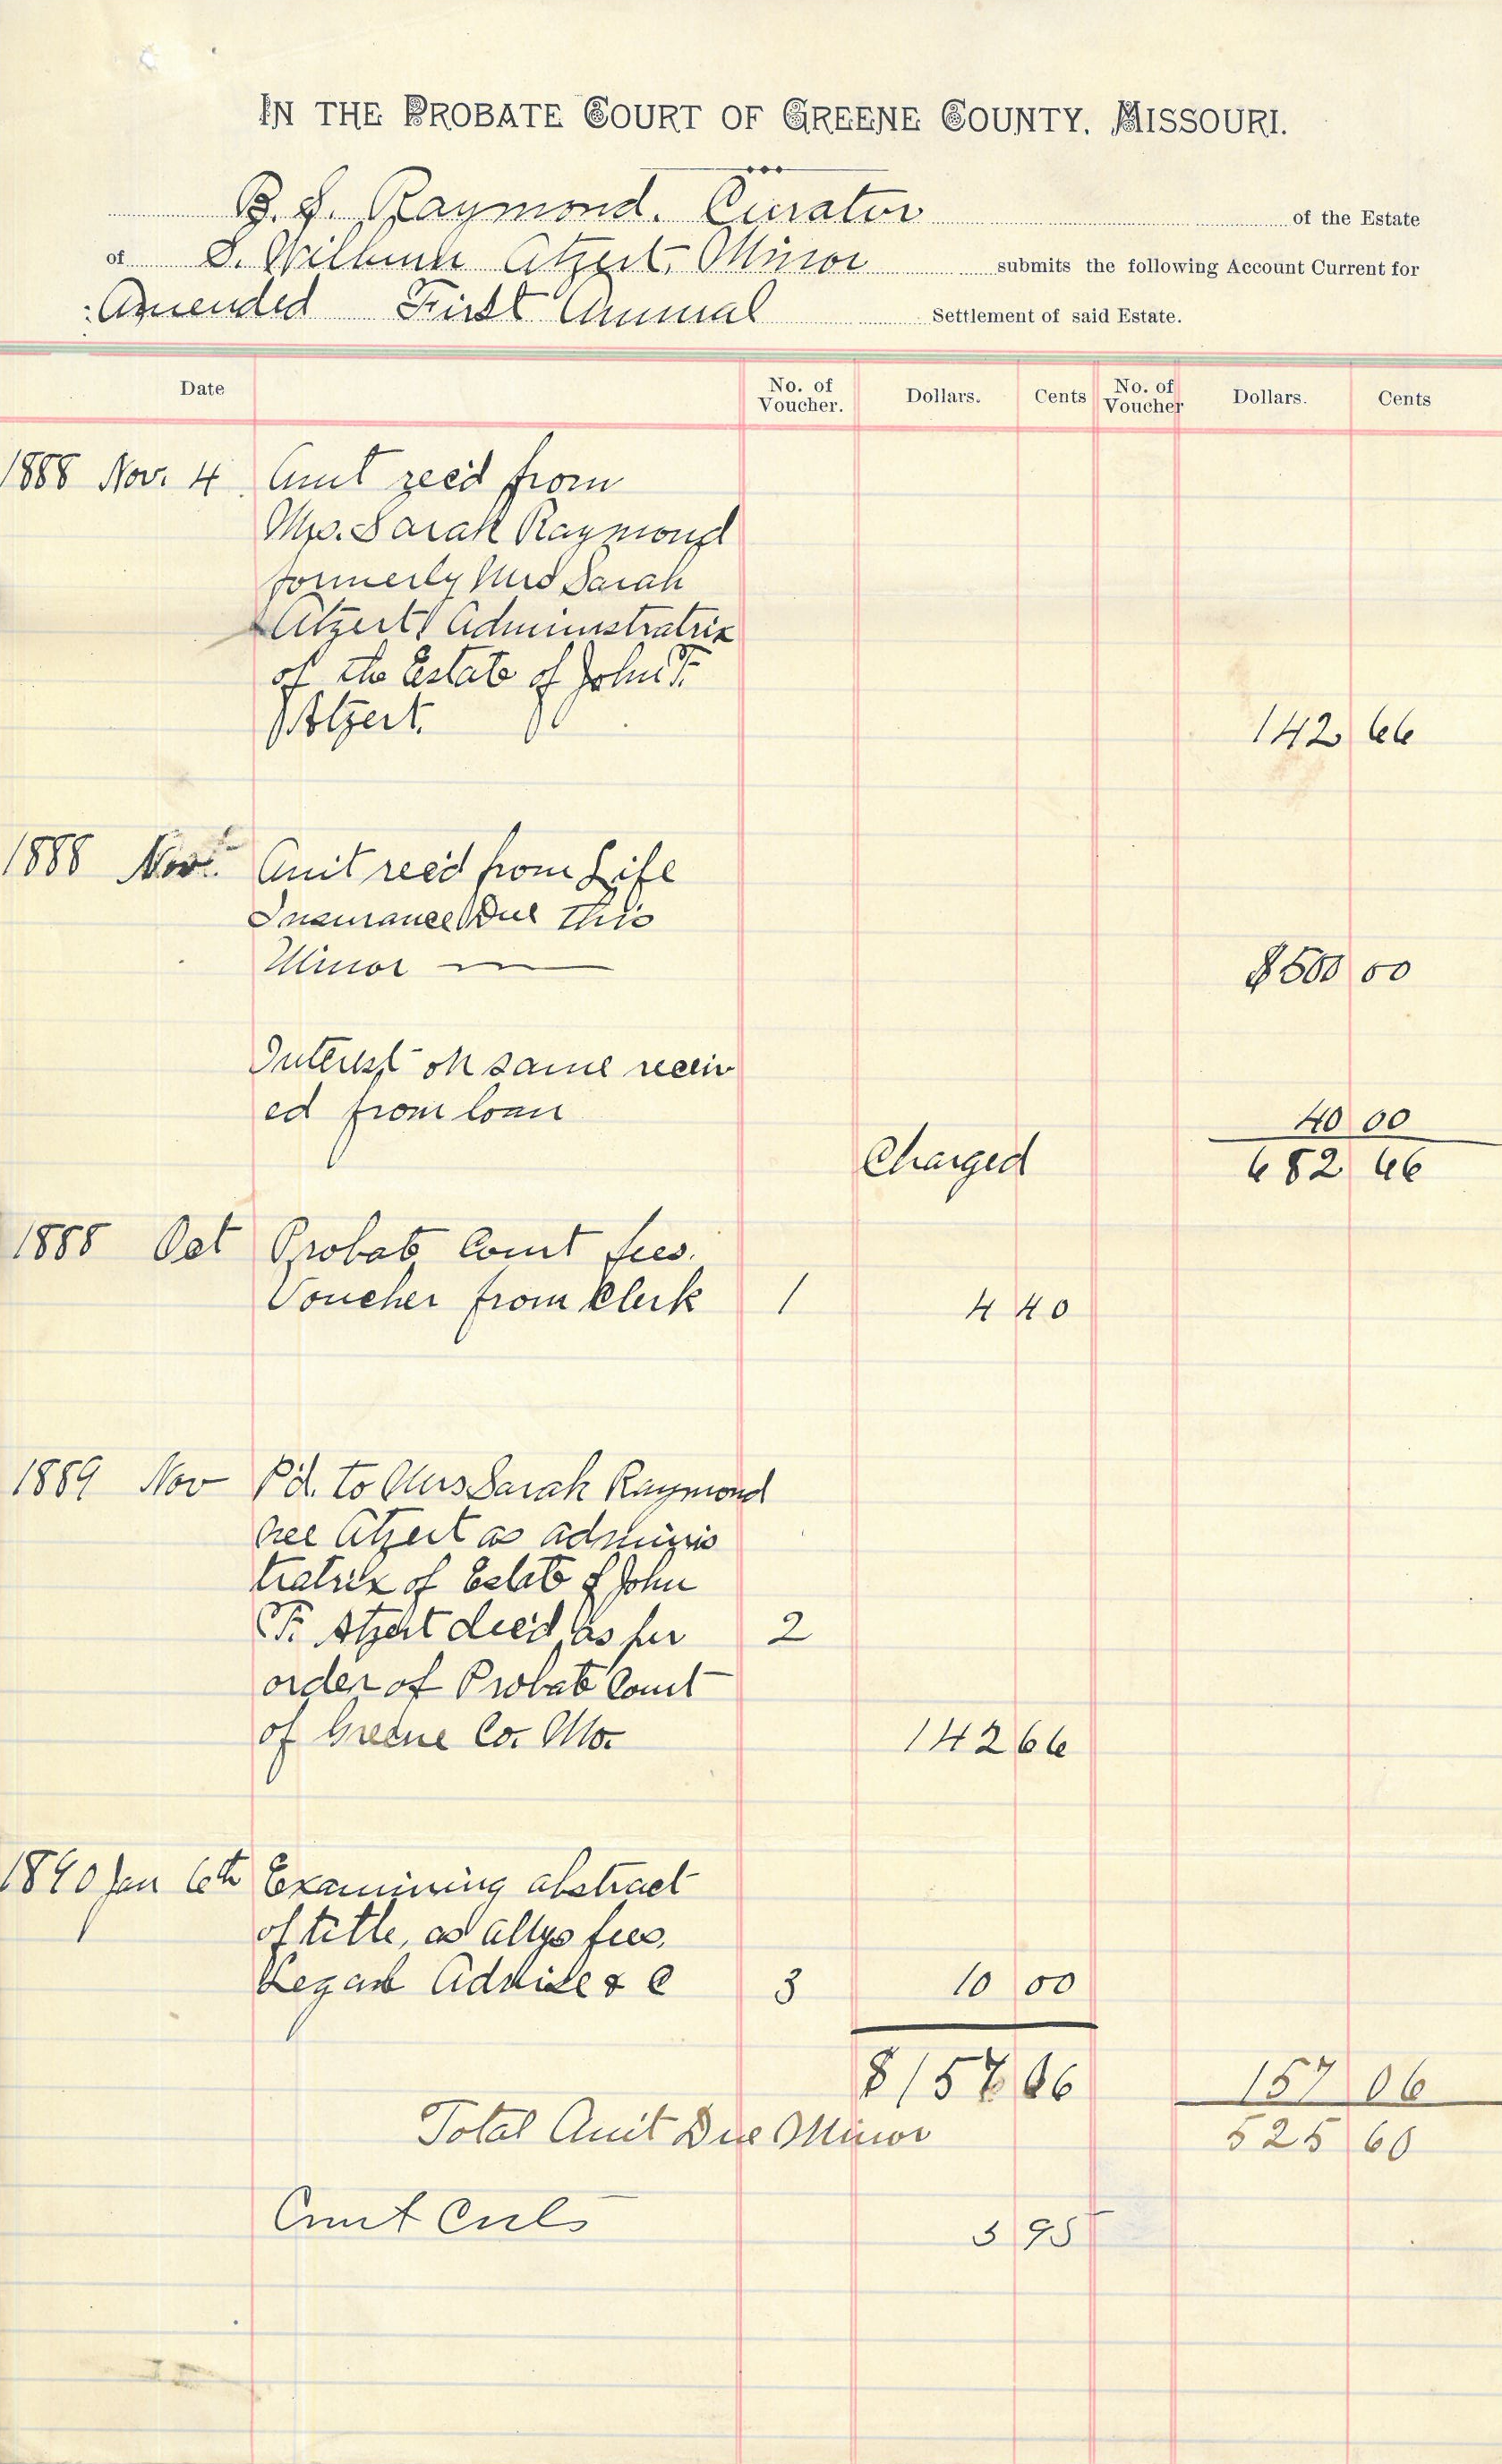 IN THE PROBATE COURT OF GREENE COUNTY, MISSOURI.
B. F. Raymond. Curator of the Estate
of S. Wilburn Atzert, Minor submits the following Account Current for
Amended First Annual Settlement of said Estate.
Date No. of Voucher. Dollars. Cents No. of Voucher Dollars. Cents
1888 Nov. 4 Amt rec'd from
Mrs. Sarah Raymond
formerly Mrs Sarah
Atzert Administratrix
of the Estate of John F.
Atzert. 142 66
1888 Nov. Amt rec'd from Life
Insurance Due this
Minor $500 00
Interest on same receiv
ed from loan 40 00
Charged 682 66
1888 Oct Probate Court fees.
Voucher from Clerk 1 4 40
1889 Nov P'd. to Mrs Sarah Raymond
nee Atzert as adminis
tratrix of Estate of John
F. Atzert dec'd as per 2
order of Probate Court
of Greene Co. Mo. 142 66
1890 Jan 6th Examining abstract
of title, as attys fees,
Legal Advise & C 3 10 00
$157 06 157 06
Total Amt Due Minor 525 60
Court Costs 3 95